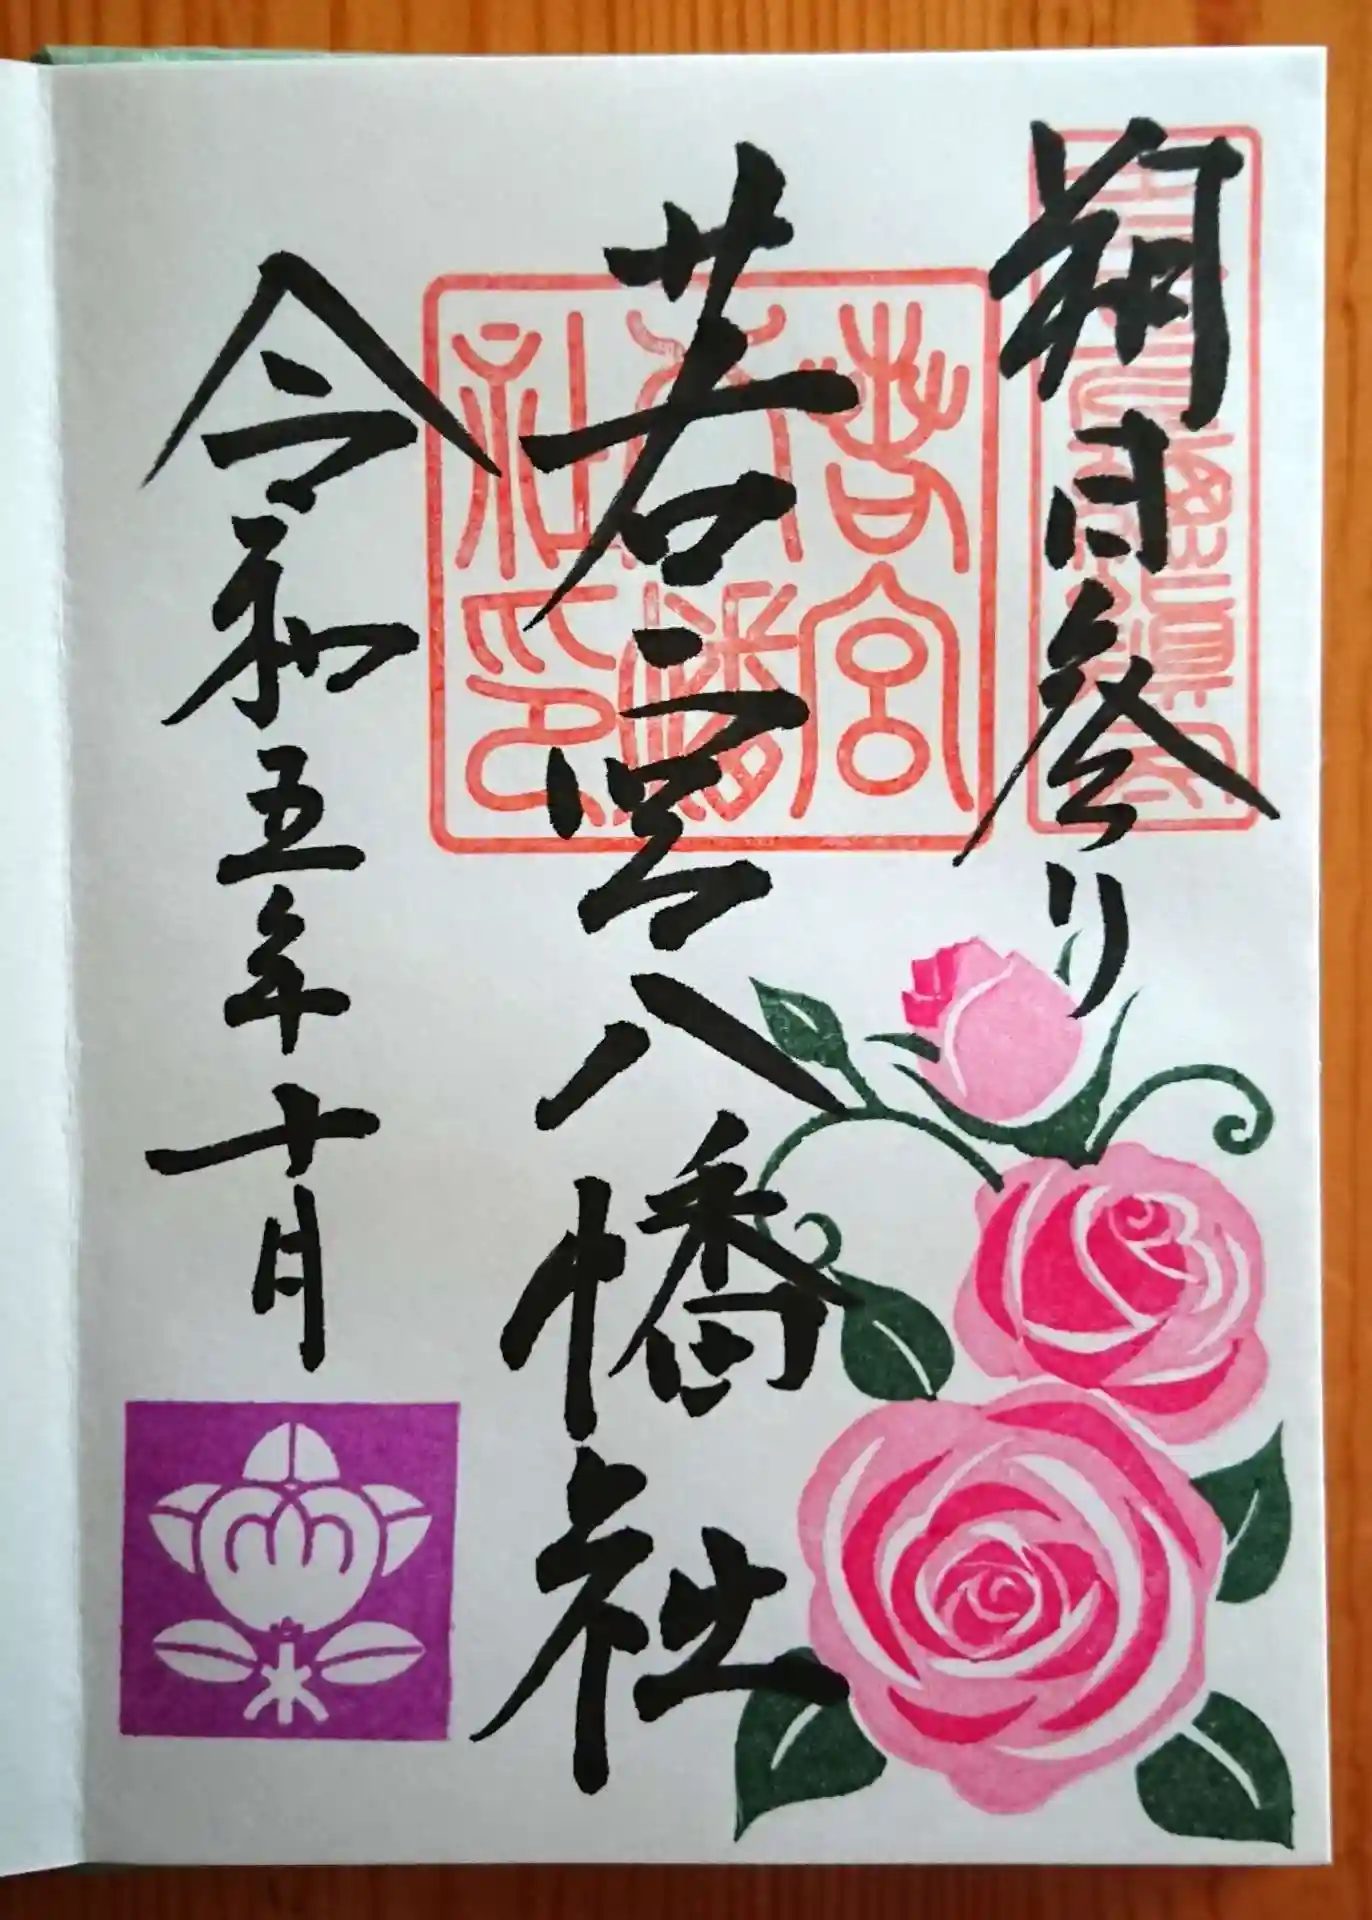 朔日参り
若宮八幡社
令和五年十月
若宮
八幡
社印